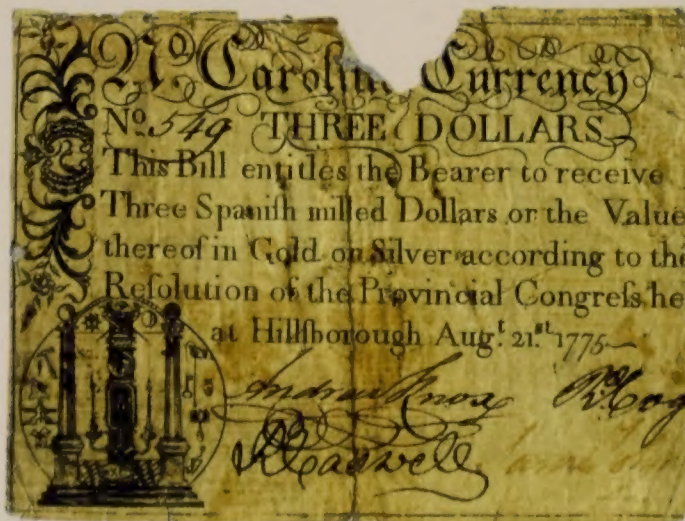 No Carolina Currency
No. 549 THREE DOLLARS
This Bill entitles the Bearer to receive
Three Spaniſh milled Dollars or the Value
thereof in Gold or Silver according to the
Reſolution of the Provincial Congreſs he
at Hillſborough Augt. 21st. 1775
Andrew Knox
R Caswell